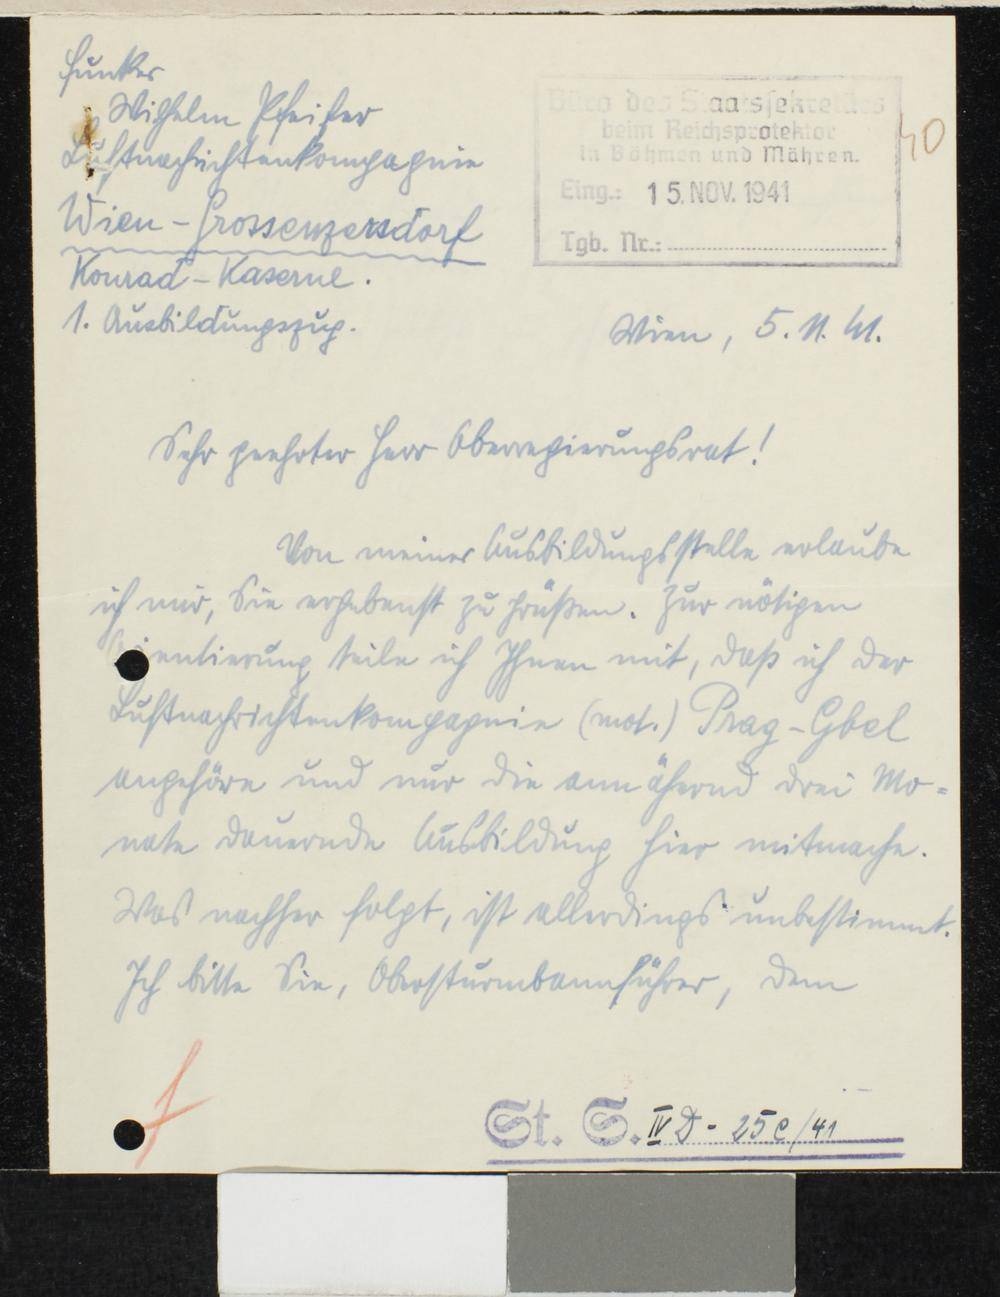 Funker
Wilhelm Pfeifer
Luftnachrichtenkompagnie
Wien-Grossenzersdorf
Konrad-Kaserne.
1. Ausbildungszug.
Büro des Staatssekretärs
beim Reichsprotektor
in Böhmen und Mähren.
Eing.: 15. NOV. 1941
Tgb. Nr.:
40
Wien, 5. 11. 41.
Sehr geehrter Herr Oberregierungsrat!
Von meiner Ausbildungsstelle erlaube
ich mir, Sie ergebenst zu grüßen. Zur nötigen
Orientierung teile ich Ihnen mit, daß ich der
Luftnachrichtenkompagnie (mot.) Prag-Gbel
angehöre und nur die annähernd drei Mo=
nate dauernde Ausbildung hier mitmache.
Was nachher folgt, ist allerdings unbestimmt.
Ich bitte Sie, Obersturmbannführer, dem
St. S. IV D - 25 e/41